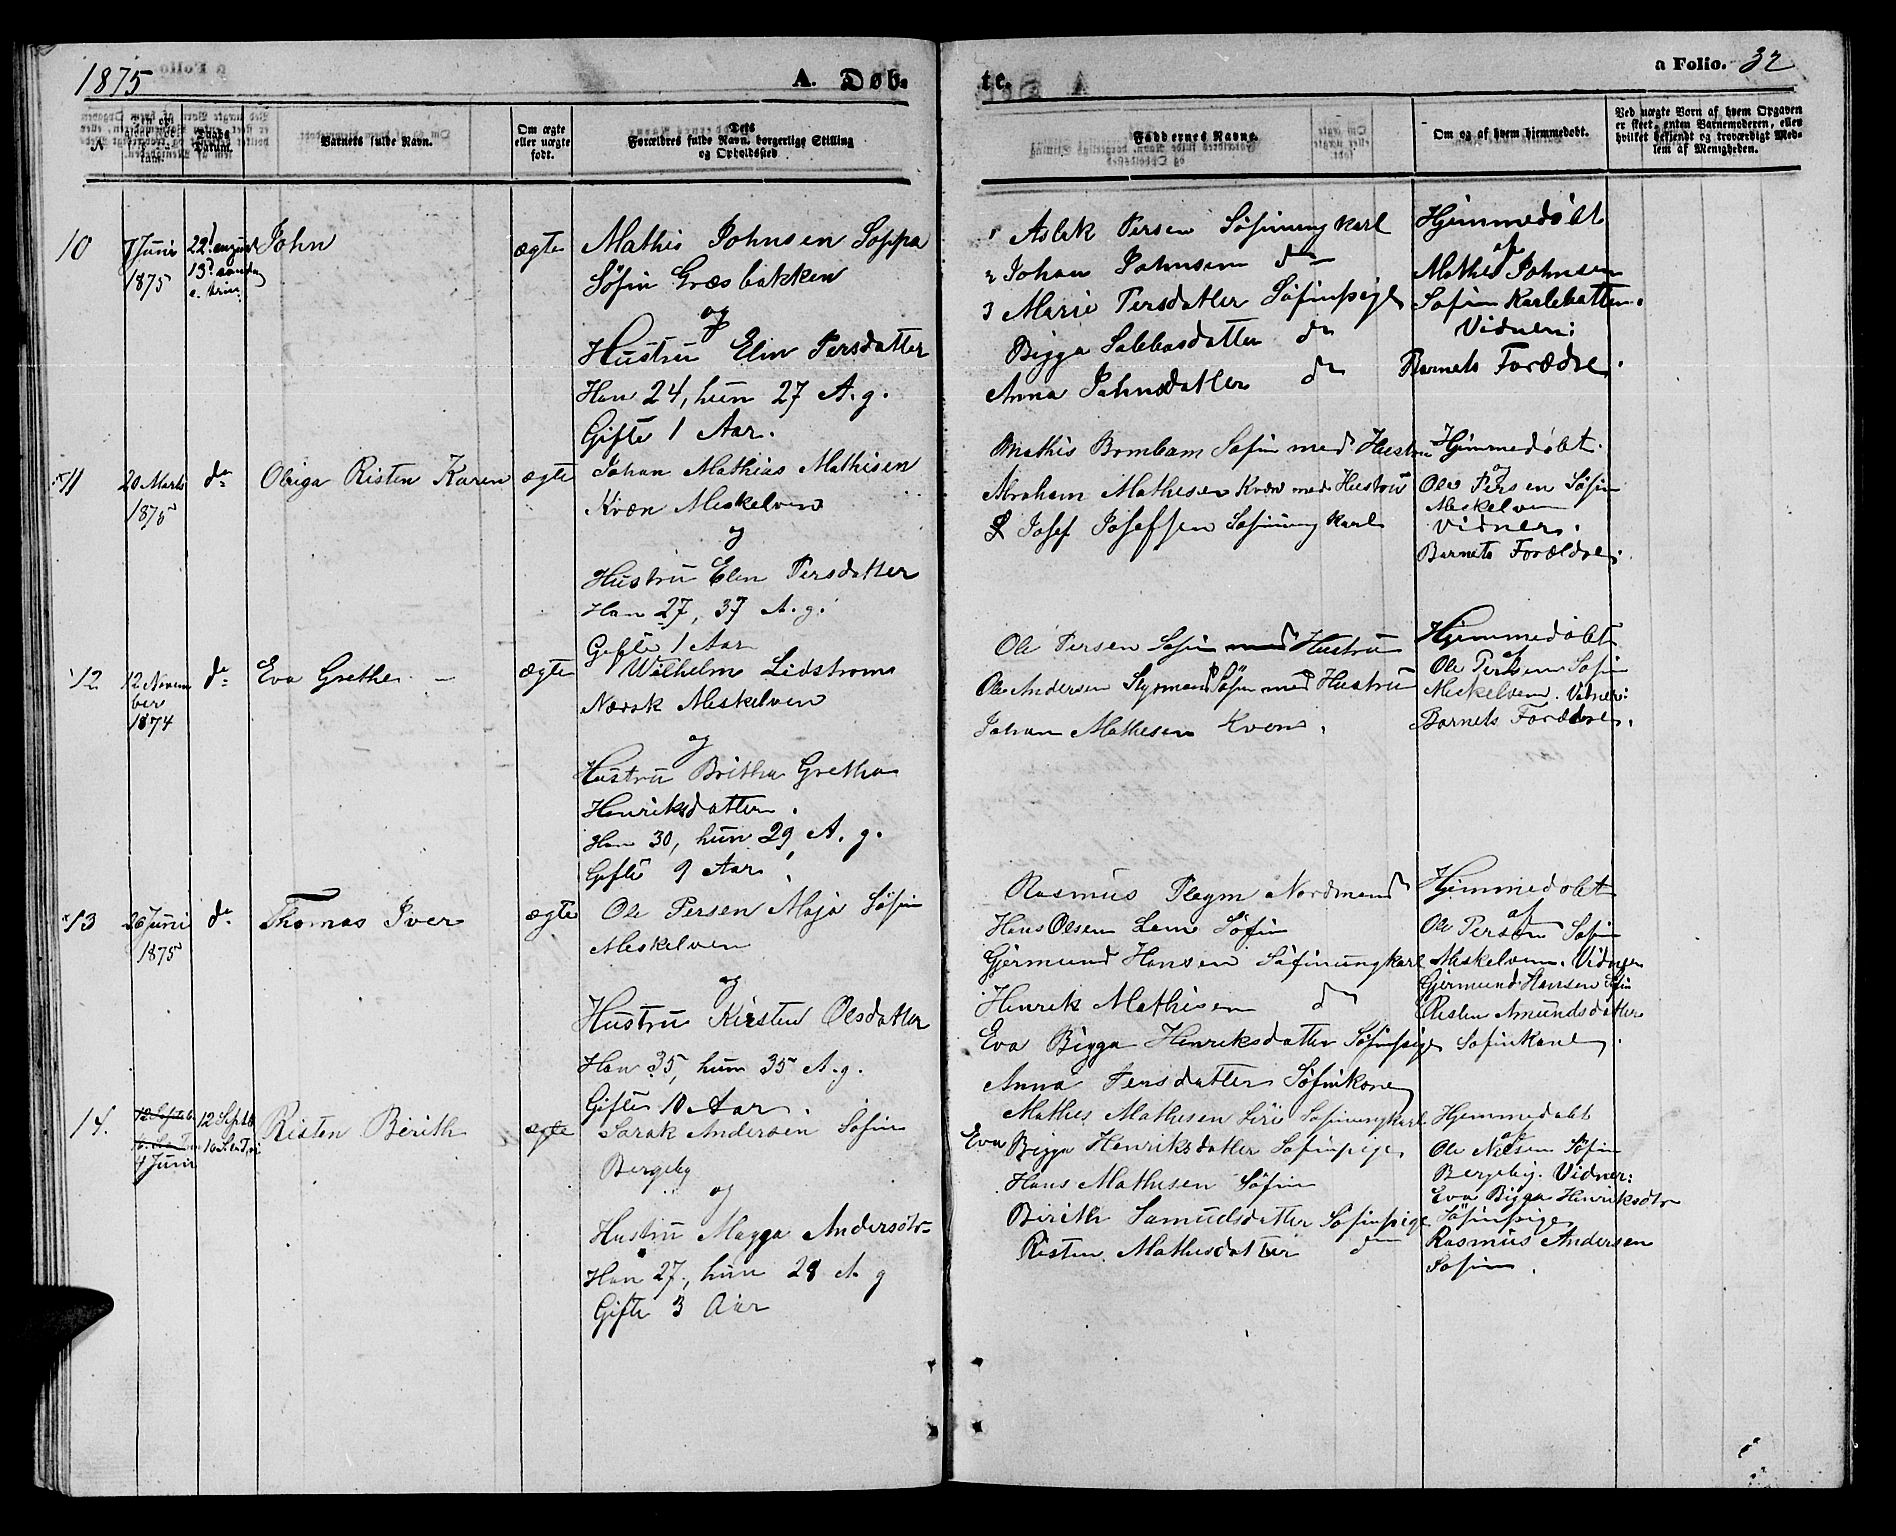 1875
A. Døb-
te.
a Folio. 32
Barnets fulde Navn.
Om ægte eller uægte født.
Dets Forældres fulde Navn, borgerlige Stilling og Opholdssted
Faddernes Navne.
Om og af hvem hjemmedøbt.
Ved uægte Børn af hvem Opgaven er skeet, enten Barnemoderen, eller hvilket bekjendt og troværdigt Medlem af Menigheden.
10
7 Juni
1875
22d august
13d sønda
e. trin.
John
ægte
Mathis Johnsen Soppa
Søfin Græsbakken
og
Hustru Elin Persdatter
Han 24, hun 27 A. g.
Gifte 1 Aar.
1 Aslak Persen Søfinungkarl
2 Johan Johnsen do
3 Marie Persdatter Søfinpige
Bigga Sabbasdatter do
Anna Johnsdatter do
Hjemmedøbt
af
Mathis Johnsen
Søfin Karlebotten.
Vidner:
Barnets Forældre.
11
20 Marts
1875
do
Olriga Risten Karen
ægte
Johan Mathias Mathisen
Kvæn Meskelven
og
Hustru Elen Persdatter
Han 27, 37 A. g.
Gifte 1 Aar
Mathis Bomban Søfin med Hustru
Abraham Mathesen Kvæn med Hustru
Josef Josefsen Søfinungkarl
Hjemmedøbt.
af
Ole Persen Søfin
Meskelven
Vidner.
Barnets Forældre.
12
12 Novem
ber
1874
do
Eva Grethe
ægte
Wilhelm Lidstrøm
Norsk Meskelven
og
Hustru Britha Gretha
Henriksdatter.
Han 30, hun 29 A. g.
Gifte 9 Aar.
Ole Persen Søfin med Hustru
Ole Andersen Styrmand Søfin med Hustru
Johan Mathesen Kvæn.
Hjemmedøbt
af
Ole Persen Søfin
Meskelven. Vidner:
Barnets Forældre.
13
26 Juni
1875
do
Thomas Iver
ægte
Ole Persen Maja Søfin
Meskelven
og
Hustru Kirsten Olsdatter
Han 35, hun 35 A. g.
Gifte 10 Aar.
Rasmus Pleym Nordmand
Hans Olsen Lem Søfin
Gjermund Hansen Søfinungkarl
Henrik Mathisen do
Eva Bigga Henriksdatter Søfinpige
Anna Persdatter Søfinkone
Hjemmedøbt
af
Ole Persen Søfin
Meskelven. Vidner
Gjermund Hansen Søfin
Risten Amundsdatter
Søfinkone.
14.
4 Juni
12 Septb
16 S. e. Tri
Risten Berith
ægte
Isrok Andersen Søfin
Bergeby
og
Hustru Magga Andersdtr
Han 27, hun 28 A. g
Gifte 3 Aar
Mathes Mathesen Siri Søfinungkarl
Eva Bigga Henriksdatter Søfinpige
Hans Mathesen Søfin
Berith Samudsdatter Søfinpige
Risten Mathisdatter do
Hjemmedøbt
af
Ole Nilsen Søfin
Bergeby. Vidner:
Eva Bigga Henriksdtr
Søfinpige
Rasmus Andersen
Søfin.